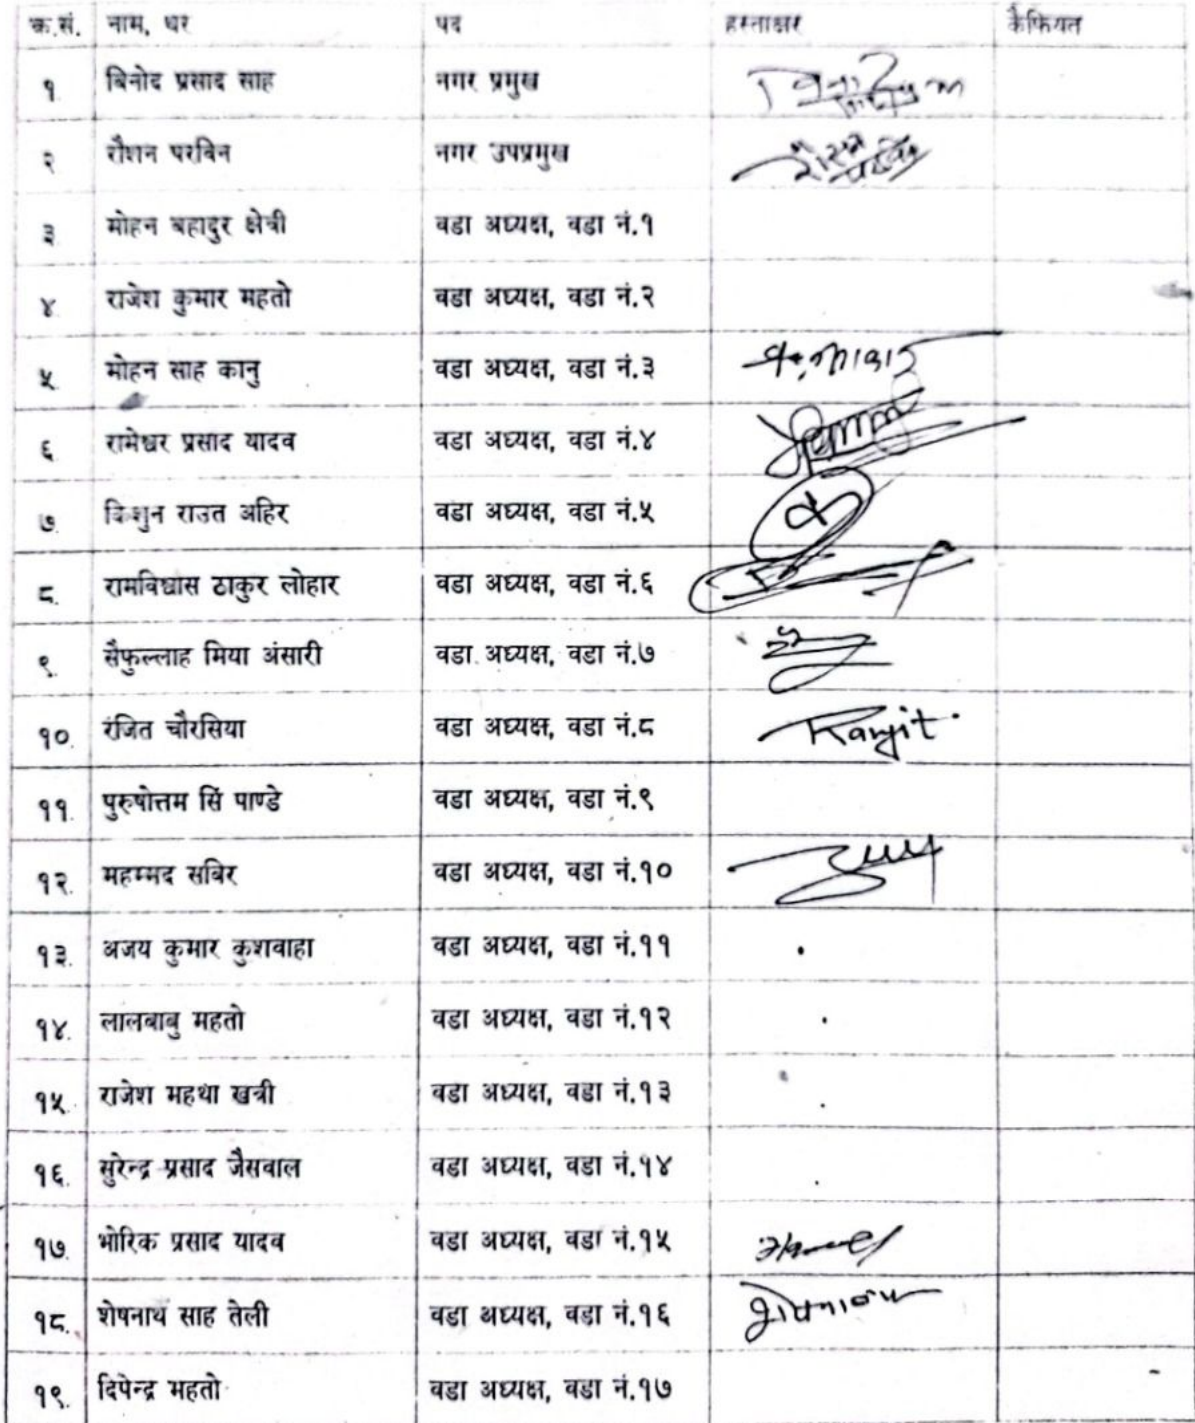 क्र.सं. नाम, थर पद हस्ताक्षर कैफियत
१. बिनोद प्रसाद साह नगर प्रमुख
२. रौशन परबिन नगर उपप्रमुख रौशन परविन
३. मोहन बहादुर क्षेत्री वडा अध्यक्ष, वडा नं.१
४. राजेश कुमार महतो वडा अध्यक्ष, वडा नं.२
५. मोहन साह कानु वडा अध्यक्ष, वडा नं.३
६. रामेश्वर प्रसाद यादव वडा अध्यक्ष, वडा नं.४
७. बिशुन राउत अहिर वडा अध्यक्ष, वडा नं.५
८. रामविश्वास ठाकुर लोहार वडा अध्यक्ष, वडा नं.६
९. सैफुल्लाह मिया अंसारी वडा अध्यक्ष, वडा नं.७
१०. रंजित चौरसिया वडा अध्यक्ष, वडा नं.८ Ranjit
११. पुरुषोत्तम सिं पाण्डे वडा अध्यक्ष, वडा नं.९
१२. महम्मद सबिर वडा अध्यक्ष, वडा नं.१०
१३. अजय कुमार कुशवाहा वडा अध्यक्ष, वडा नं.११
१४. लालबाबु महतो वडा अध्यक्ष, वडा नं.१२
१५. राजेश महथा खत्री वडा अध्यक्ष, वडा नं.१३
१६. सुरेन्द्र प्रसाद जैसवाल वडा अध्यक्ष, वडा नं.१४
१७. भोरिक प्रसाद यादव वडा अध्यक्ष, वडा नं.१५
१८. शेषनाथ साह तेली वडा अध्यक्ष, वडा नं.१६
१९. दिपेन्द्र महतो वडा अध्यक्ष, वडा नं.१७